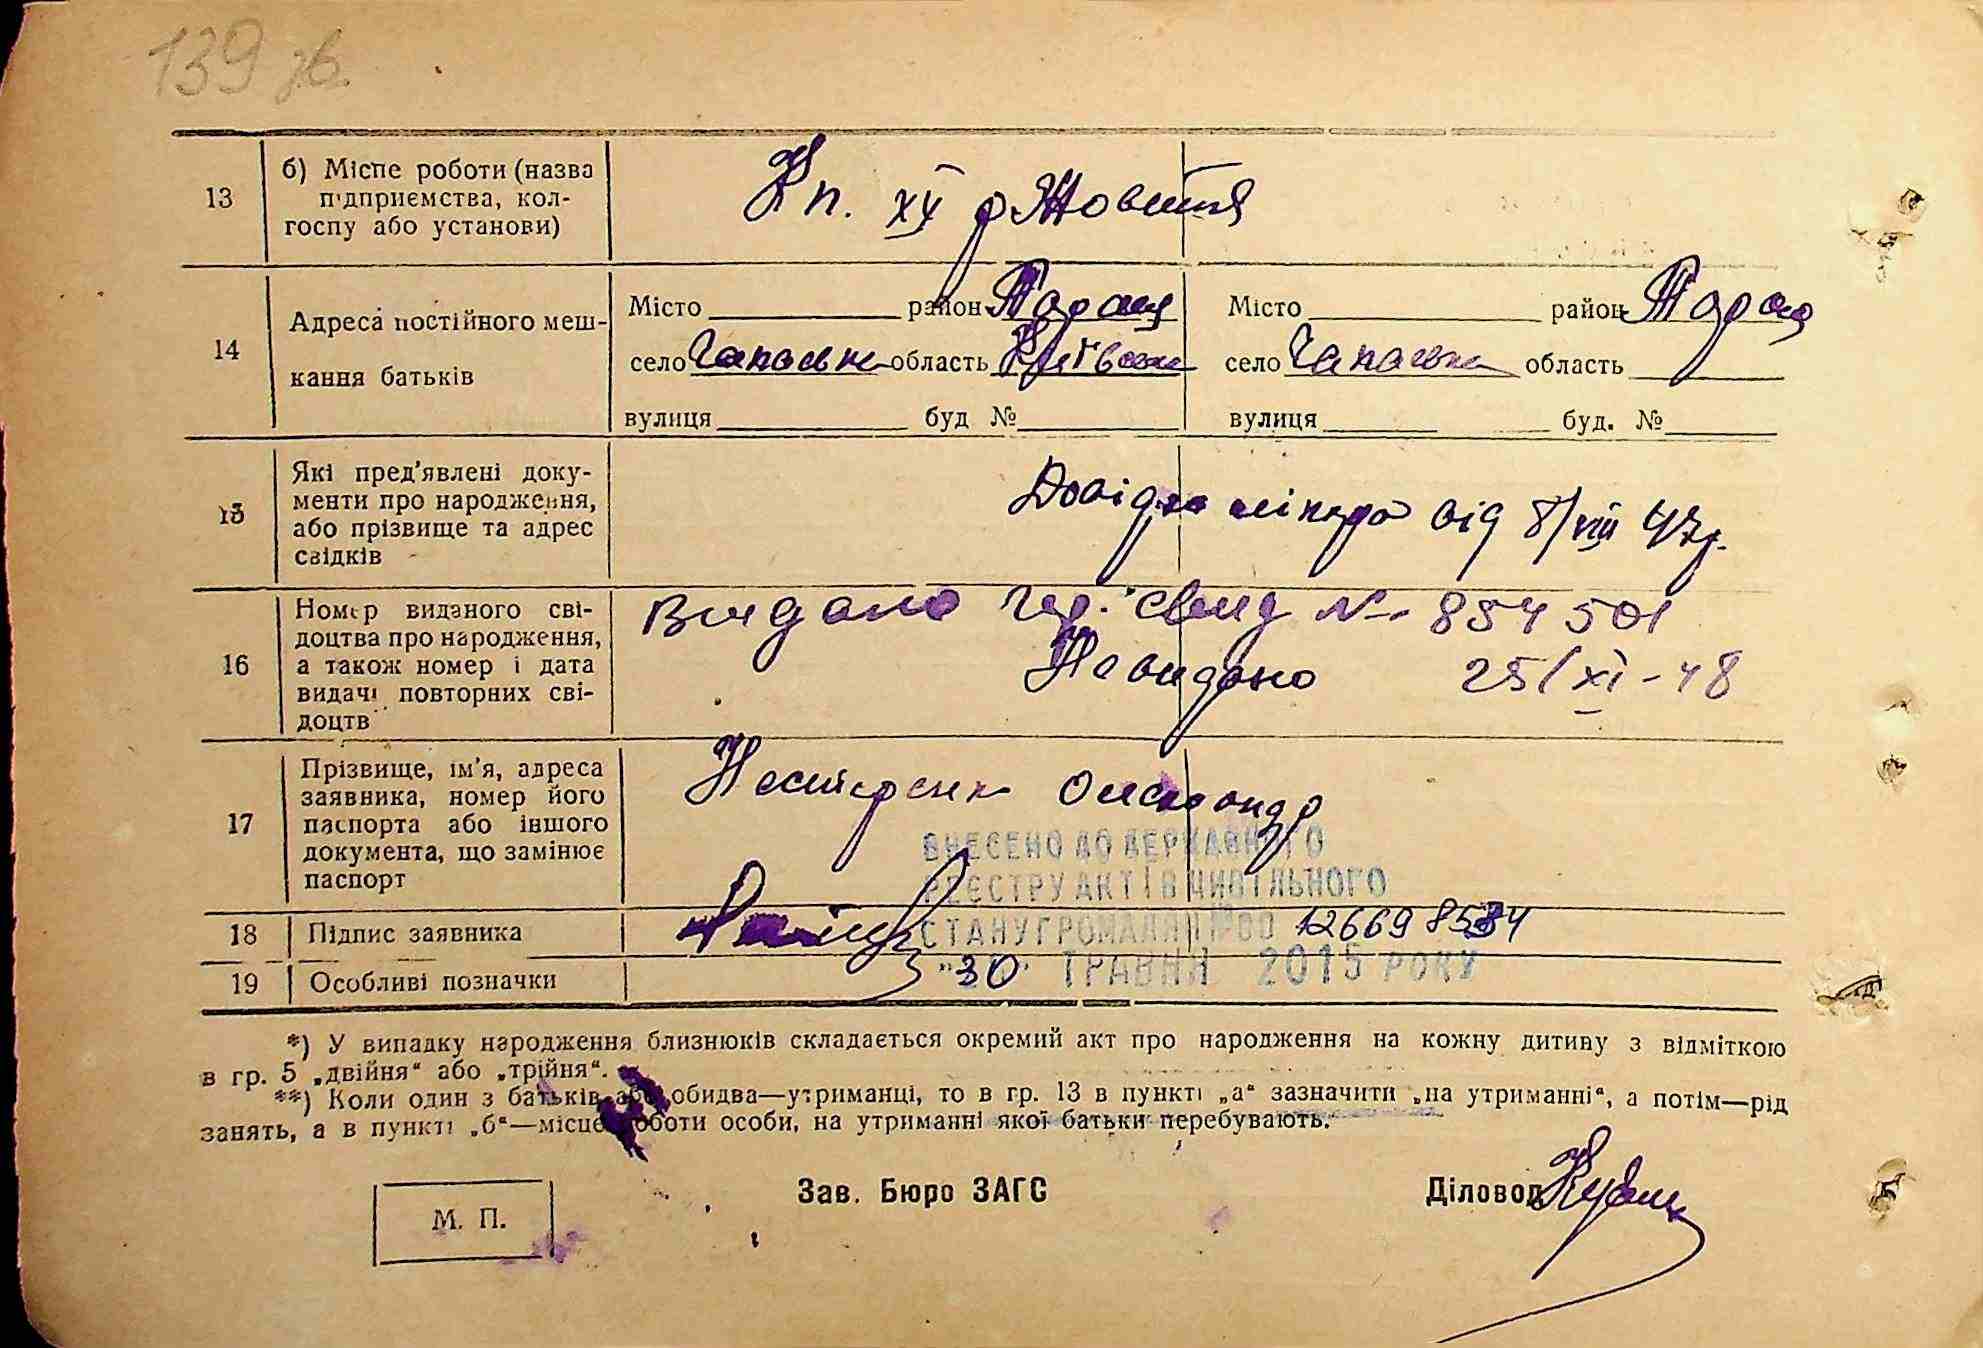 139 зв.
13 б) Місце роботи (назва підприємства, колгоспу або установи) Кп. XX р Жовтня
14 Адреса постійного мешкання батьків
Місто район Таращ Місто район Таращ
село Чапаєвка область Київська село Чапаєвка область
вулиця буд № вулиця буд. №
15 Які пред'явлені документи про народження, або прізвище та адрес свідків Довідка лікаря від 8/VIII 47р.
16 Номер виданого свідоцтва про народження, а також номер і дата видачі повторних свідоцтв
Видано № 854501
Не видано 25/XI-48
17 Прізвище, ім'я, адреса заявника, номер його паспорта або іншого документа, що замінює паспорт Нестеренко Олександр
ВНЕСЕНО ДО ДЕРЖАВНОГО
РЕЄСТРУ АКТІВ ЦИВІЛЬНОГО
18 Підпис заявника СТАНУ ГРОМАДЯН №00 126698534
19 Особливі позначки "30" ТРАВНЯ 2015 РОКУ
*) У випадку народження близнюків складається окремий акт про народження на кожну дитину з відміткою
в гр. 5 „двійня“ або „трійня“.
**) Коли один з батьків або обидва—утриманці, то в гр. 13 в пункті „а“ зазначити „на утриманні“, а потім—рід
занять, а в пункті „б“—місце роботи особи, на утриманні якої батьки перебувають.
Зав. Бюро ЗАГС Діловод
М. П.